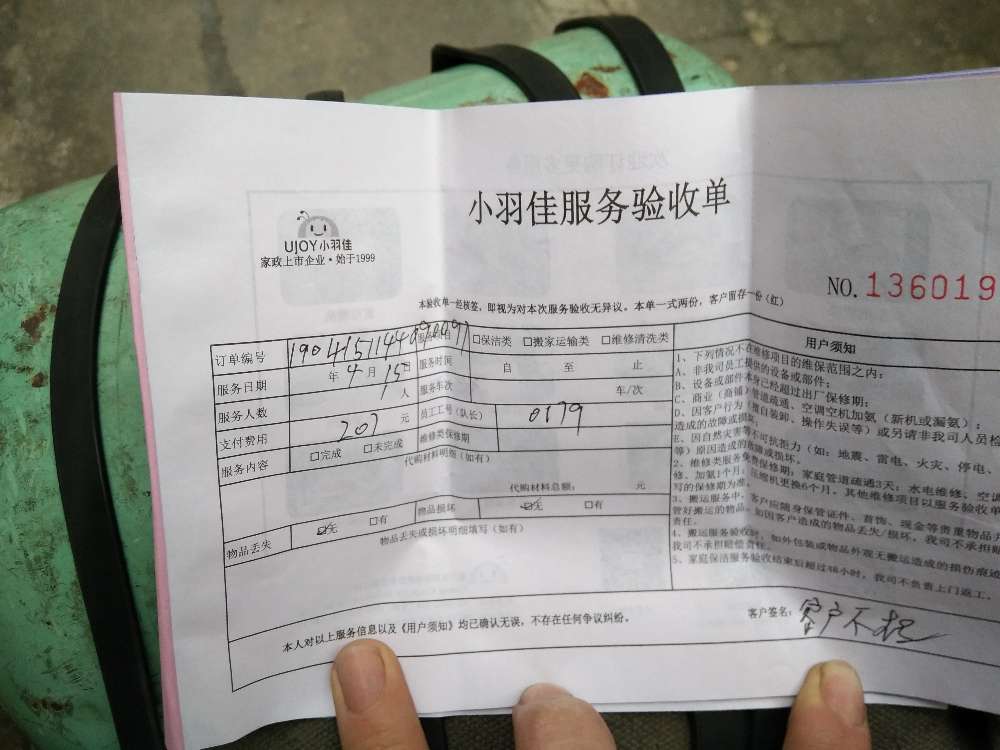 小羽佳服务验收单
UJOY小羽佳
家政上市企业·始于1999
NO.136019
本验收单一经核签，即视为对本次服务验收无异议。本单一式两份，客户留存一份（红）
订单编号 服务项目 □保洁类 □搬家运输类 □维修清洗类
服务日期 年4月15日 服务时间 自 至 止
服务人数 人 服务车次 车/次
支付费用 元 员工工号（队长） 0179
服务内容 □完成 □未完成 维修类保修期
代购材料明细（如有）
代购材料总额： 元
物品丢失 ☑无 □有 物品损坏 ☑无 □有
物品丢失或损坏明细填写（如有）
用户须知
1、下列情况不在维修项目的维保范围之内：
A、非我司员工提供的设备或部件；
B、设备或部件本身已经超过出厂保修期；
C、商业（商铺）管道疏通、空调空机加氨（新机或漏氨）；
D、因客户行为（擅自装卸、操作失误等）或另请非我司人员检
造成的故障或损坏
E、因自然灾害等不可抗拒力（如：地震、雷电、火灾、停电、
等）原因造成的故障或损坏。
2、维修类服务免费保修期：家庭管道疏通3天；水电维修、空调
修、加氨1个月；压缩机更换6个月，其他维修项目以服务验收单
写的保修期为准。
3、搬运服务中，客户应随身保管证件、首饰、现金等贵重物品并
管好搬运的物品，如因客户造成的物品丢失/损坏，我司不承担赔
责任。
4、搬运服务验收时，如外包装或物品外观无搬运造成的损伤痕迹
我司不承担赔偿责任。
5、家庭保洁服务验收结束后超过48小时，我司不负责上门返工。
本人对以上服务信息以及《用户须知》均已确认无误，不存在任何争议纠纷。
客户签名：客户不在